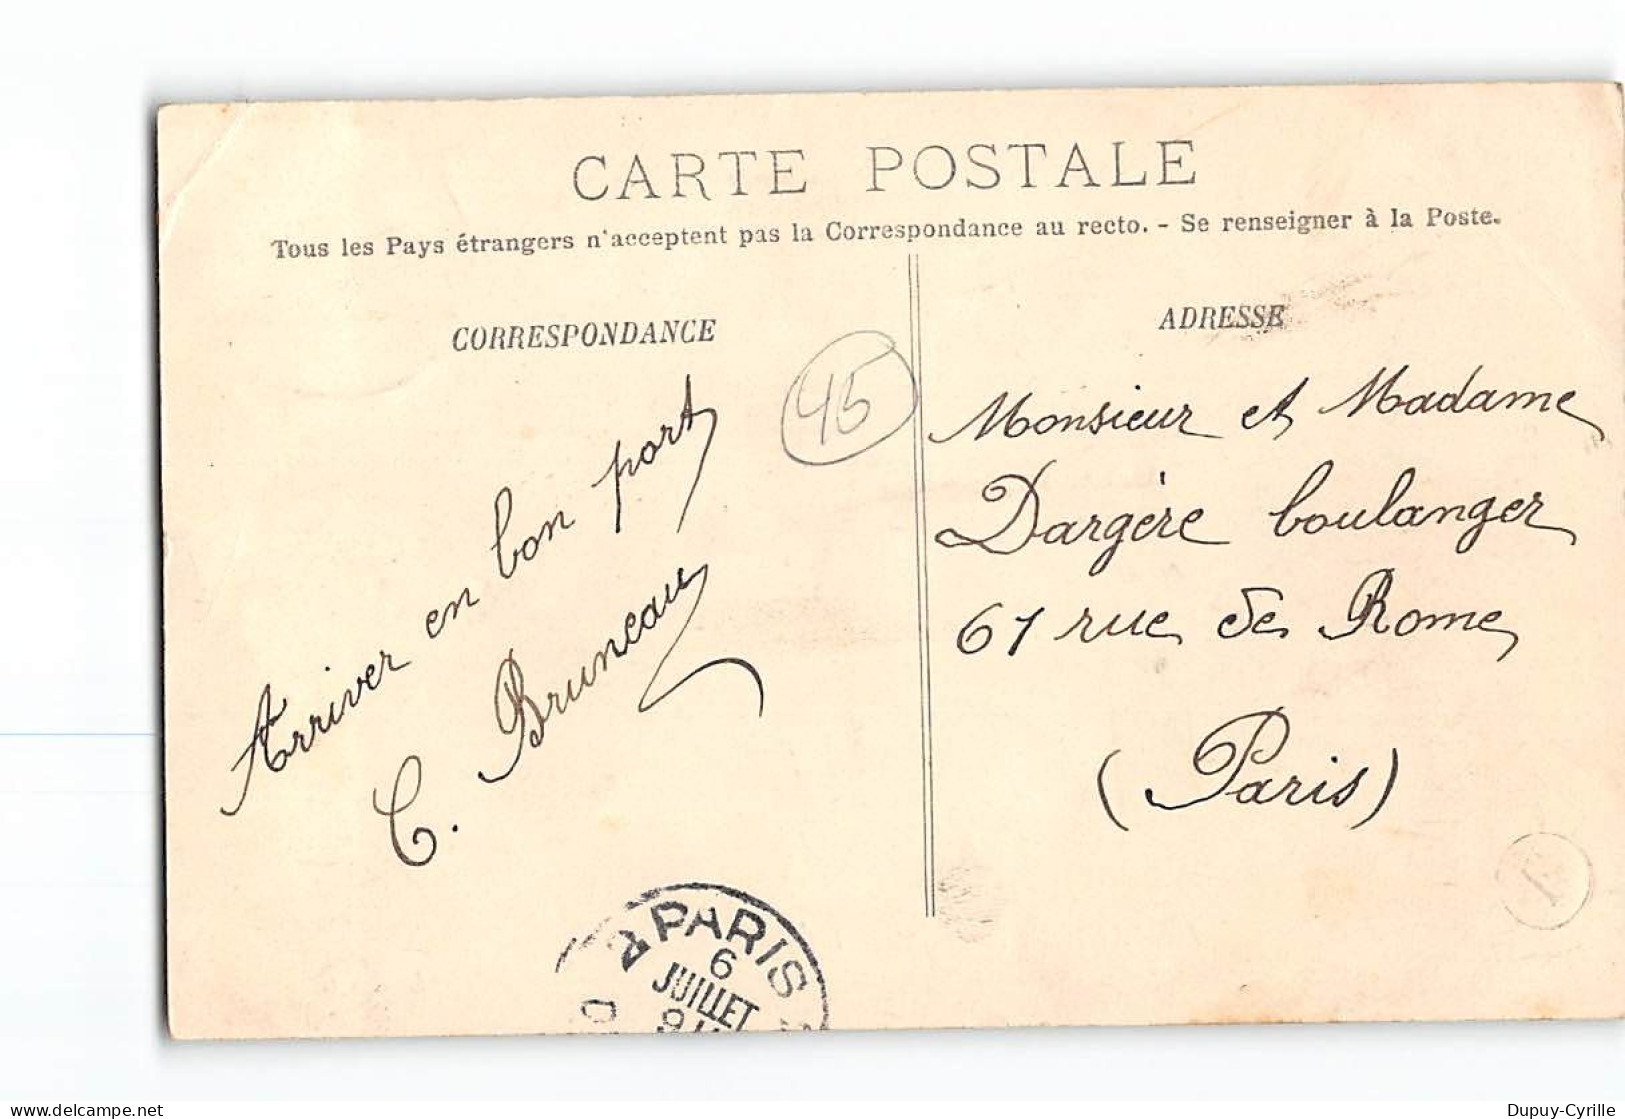 CARTE POSTALE
Tous les Pays étrangers n'acceptent pas la Correspondance au recto. - Se renseigner à la Poste.
CORRESPONDANCE
ADRESSE
45
Arriver en bon port
C. Bruneau
Monsieur et Madame
Dargère boulanger
61 rue de Rome
(Paris)
PARIS
6
JUILLET
delcampe.net
Dupuy-Cyrille